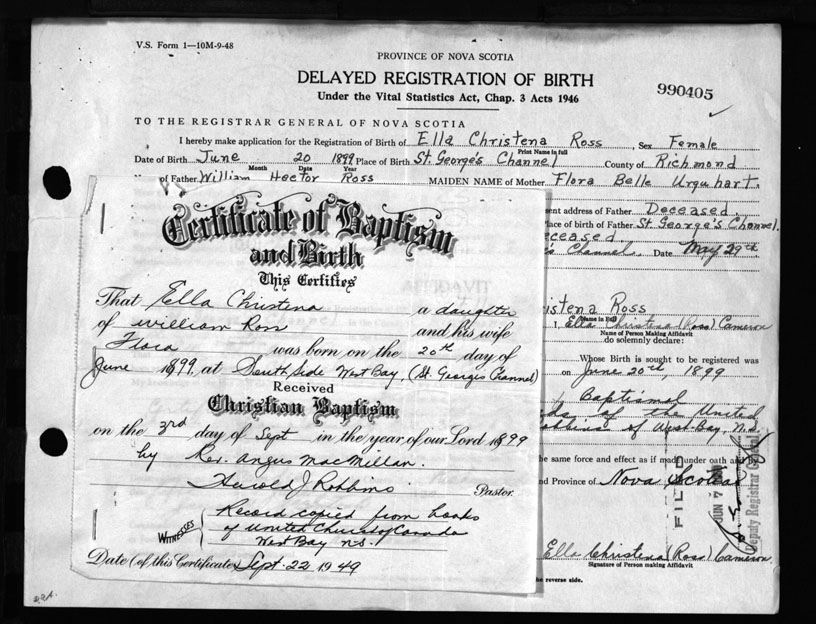 V.S. Form 1—10M-9-48
PROVINCE OF NOVA SCOTIA
DELAYED REGISTRATION OF BIRTH
Under the Vital Statistics Act, Chap. 3 Acts 1946
990405
TO THE REGISTRAR GENERAL OF NOVA SCOTIA
I hereby make application for the Registration of Birth of Ella Christena Ross, Sex Female
Print Name in full
Date of Birth June 20 1899 Place of Birth St. George's Channel County of Richmond
Month Date Year
of Father William Hector Ross MAIDEN NAME of Mother Flora Belle Urquhart.
ent address of Father Deceased.
lace of birth of Father St. George's Channel.
eceased
's Channel, Date May 29th
Certificate of Baptism
and Birth
This Certifies
That Ella Christena a daughter
of William Ross and his wife
Flora was born on the 20th day of
June 1899, at South Side West Bay, (St. Georges Channel)
Received
Christian Baptism
on the 3rd day of Sept in the year of our Lord 1899
by Rev. Angus MacMillan.
Harold J Robbins Pastor.
WITNESSES
Record copied from books
of United Church of Canada
West Bay N.S.
Date (of this Certificate) Sept. 22 1949
istena Ross
Name in Full
I, Ella Christena (Ross) Cameron
Name of Person Making Affidavit
do solemnly declare:
Whose Birth is sought to be registered was
on June 20th, 1899
Baptismal
ds of the United
obbins of West Bay, N.S.
he same force and effect as if made under oath and by
nd Province of Nova Scotia
FILED
JUN 7
Deputy Registrar General
Ella Christena (Ross) Cameron
Signature of Person making Affidavit
he reverse side.